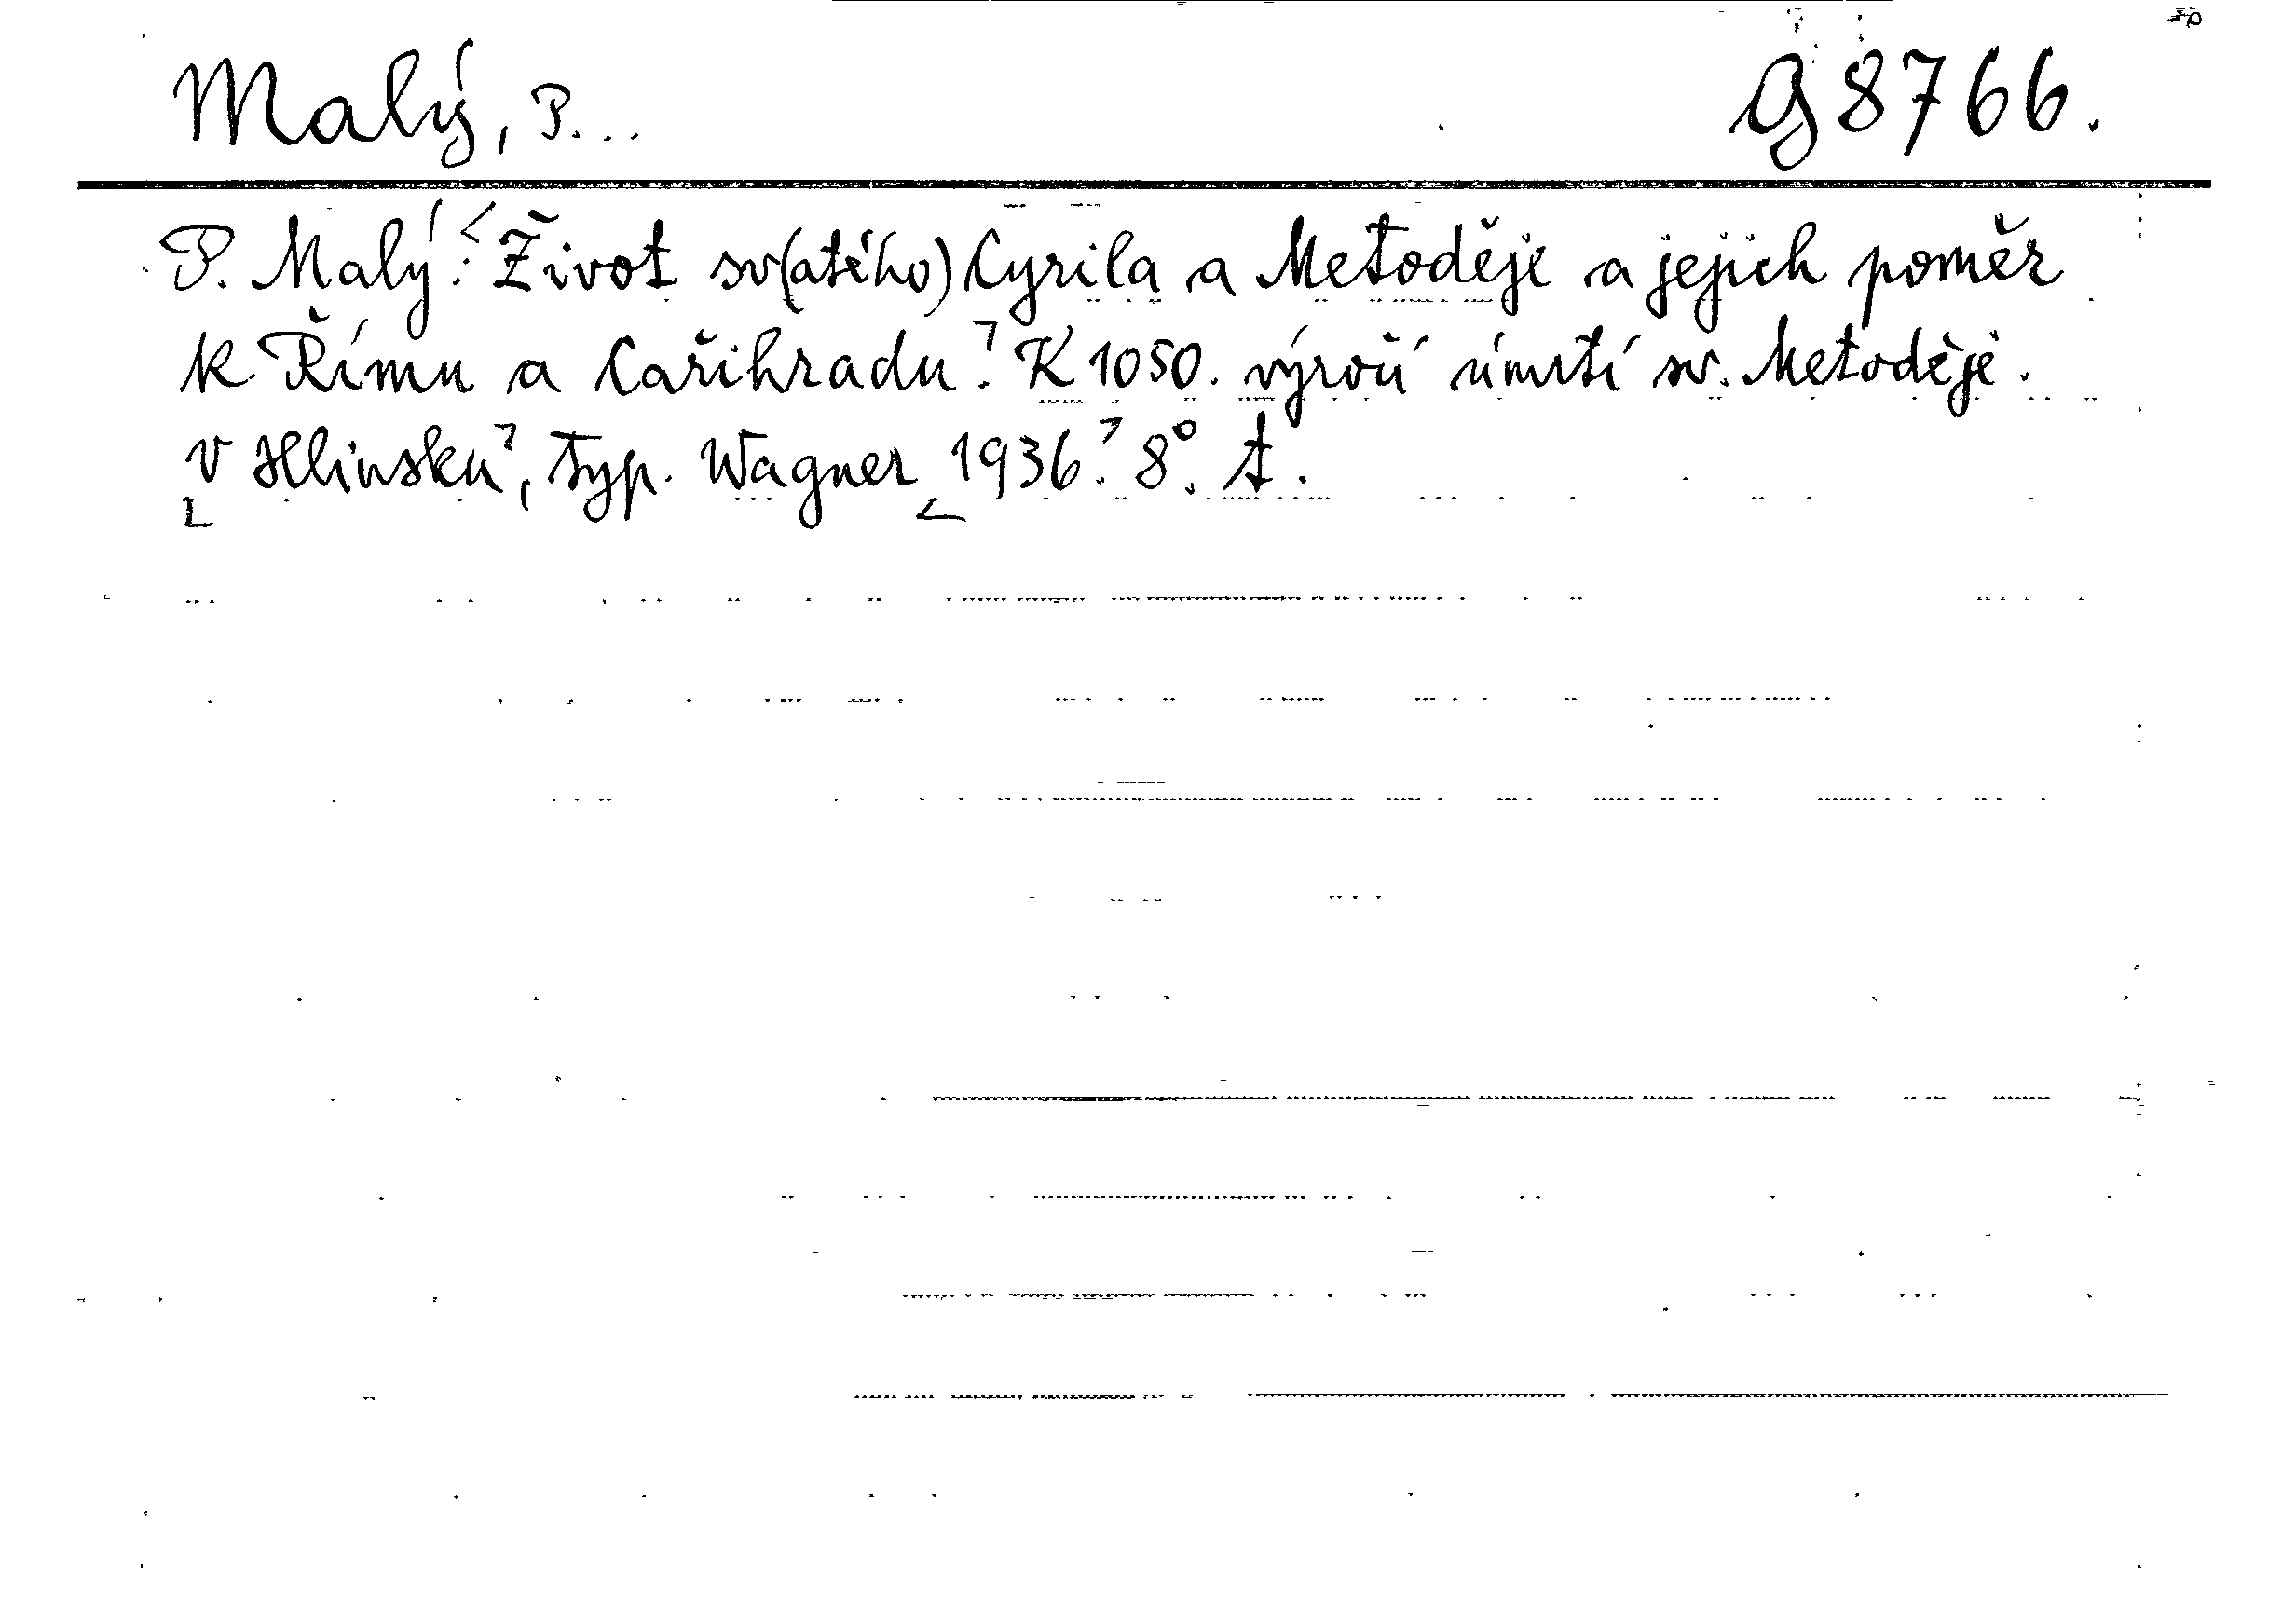 Malý, P... G 8766.
P. Malý: Život sv(atého) Cyrila a Metoděje a jejich poměr
k Římu a Cařihradu. K 1050. výročí úmrtí sv. Metoděje.
V Hlinsku, typ. Wagner 1936. 8°.